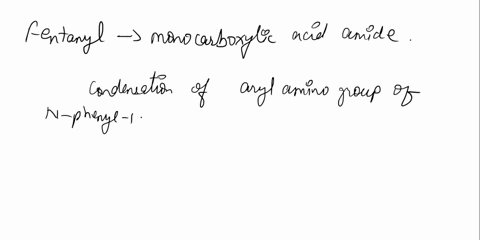 Fentanyl → monocarboxylic acid amide.
Condensation of aryl amino group of
N-phenyl-1.